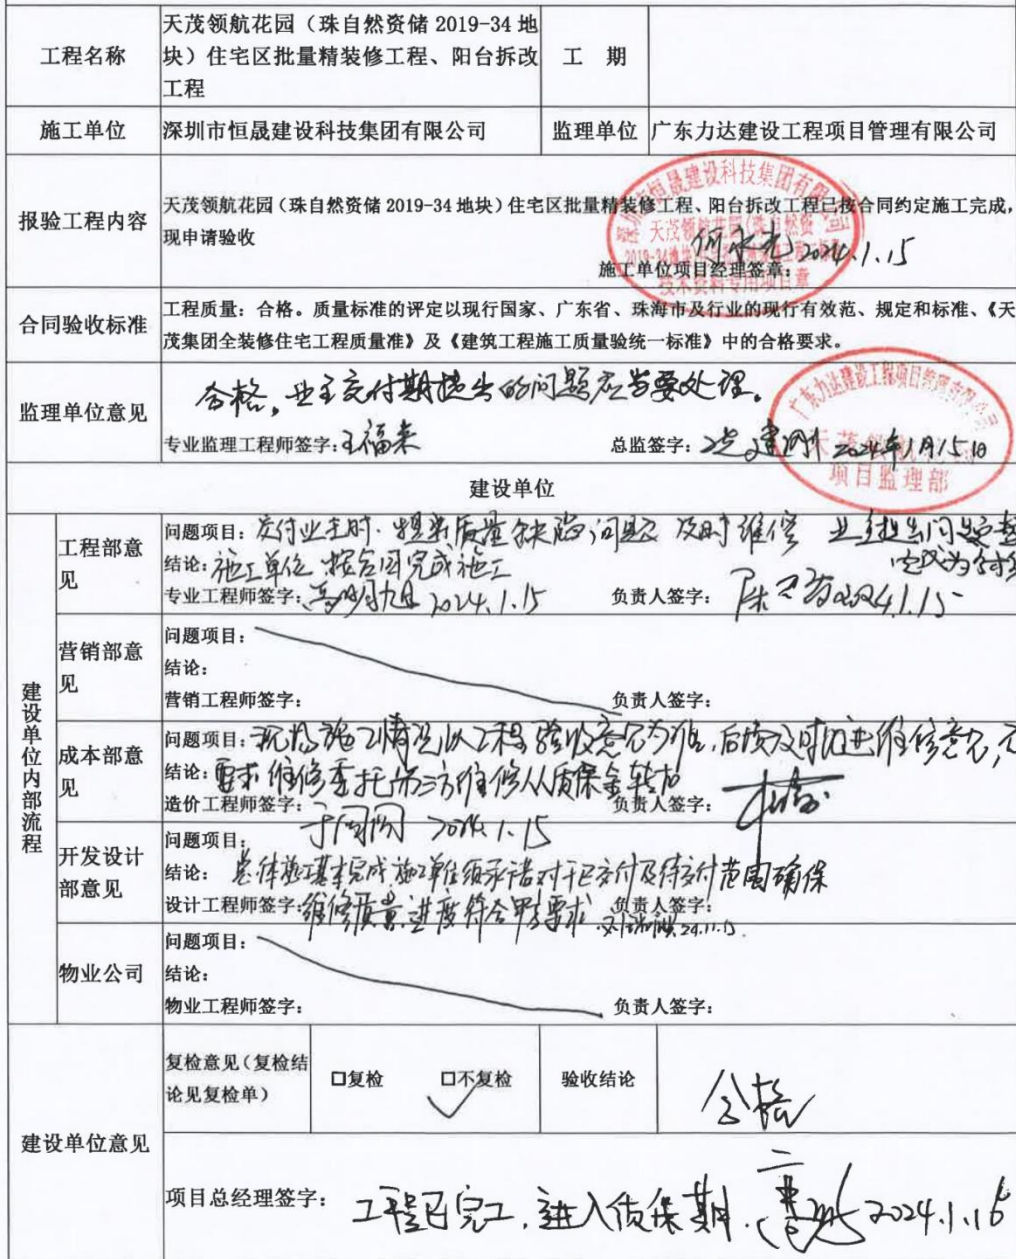 工程名称
天茂领航花园（珠自然资储 2019-34 地
块）住宅区批量精装修工程、阳台拆改
工程
工 期
施工单位
深圳市恒晟建设科技集团有限公司
监理单位
广东力达建设工程项目管理有限公司
报验工程内容
天茂领航花园（珠自然资储 2019-34 地块）住宅区批量精装修工程、阳台拆改工程已按合同约定施工完成，
现申请验收
施工单位项目经理签章：
何永光 2024.1.15
技术资料专用项目章
合同验收标准
工程质量：合格。质量标准的评定以现行国家、广东省、珠海市及行业的现行有效范、规定和标准、《天
茂集团全装修住宅工程质量准》及《建筑工程施工质量验统一标准》中的合格要求。
监理单位意见
合格，业主交付期提出的问题应当要处理。
专业监理工程师签字：王福来
总监签字：
2024年1月15日
项目监理部
建设单位
建设单位内部流程
工程部意见
问题项目：交付业主时，提出质量缺陷问题 及时维修 业主提出问题
结论：施工单位 按合同完成施工
专业工程师签字：高明旭 2024.1.15
负责人签字：
2024.1.15
营销部意见
问题项目：
结论：
营销工程师签字：
负责人签字：
成本部意见
问题项目：现场施工情况以工程验收意见为准，后续及时跟进维修意见，
结论：要求维修委托第三方维修从质保金转扣
造价工程师签字：
2024.1.15
负责人签字：
开发设计部意见
问题项目：
结论：总体施工基本完成 施工单位须承诺对于已交付及待交付范围确保
设计工程师签字：维修质量、进度符合甲方要求
负责人签字：
物业公司
问题项目：
结论：
物业工程师签字：
负责人签字：
建设单位意见
复检意见（复检结
论见复检单）
□复检
□不复检
验收结论
合格
项目总经理签字：
工程已完工，进入质保期.
2024.1.16